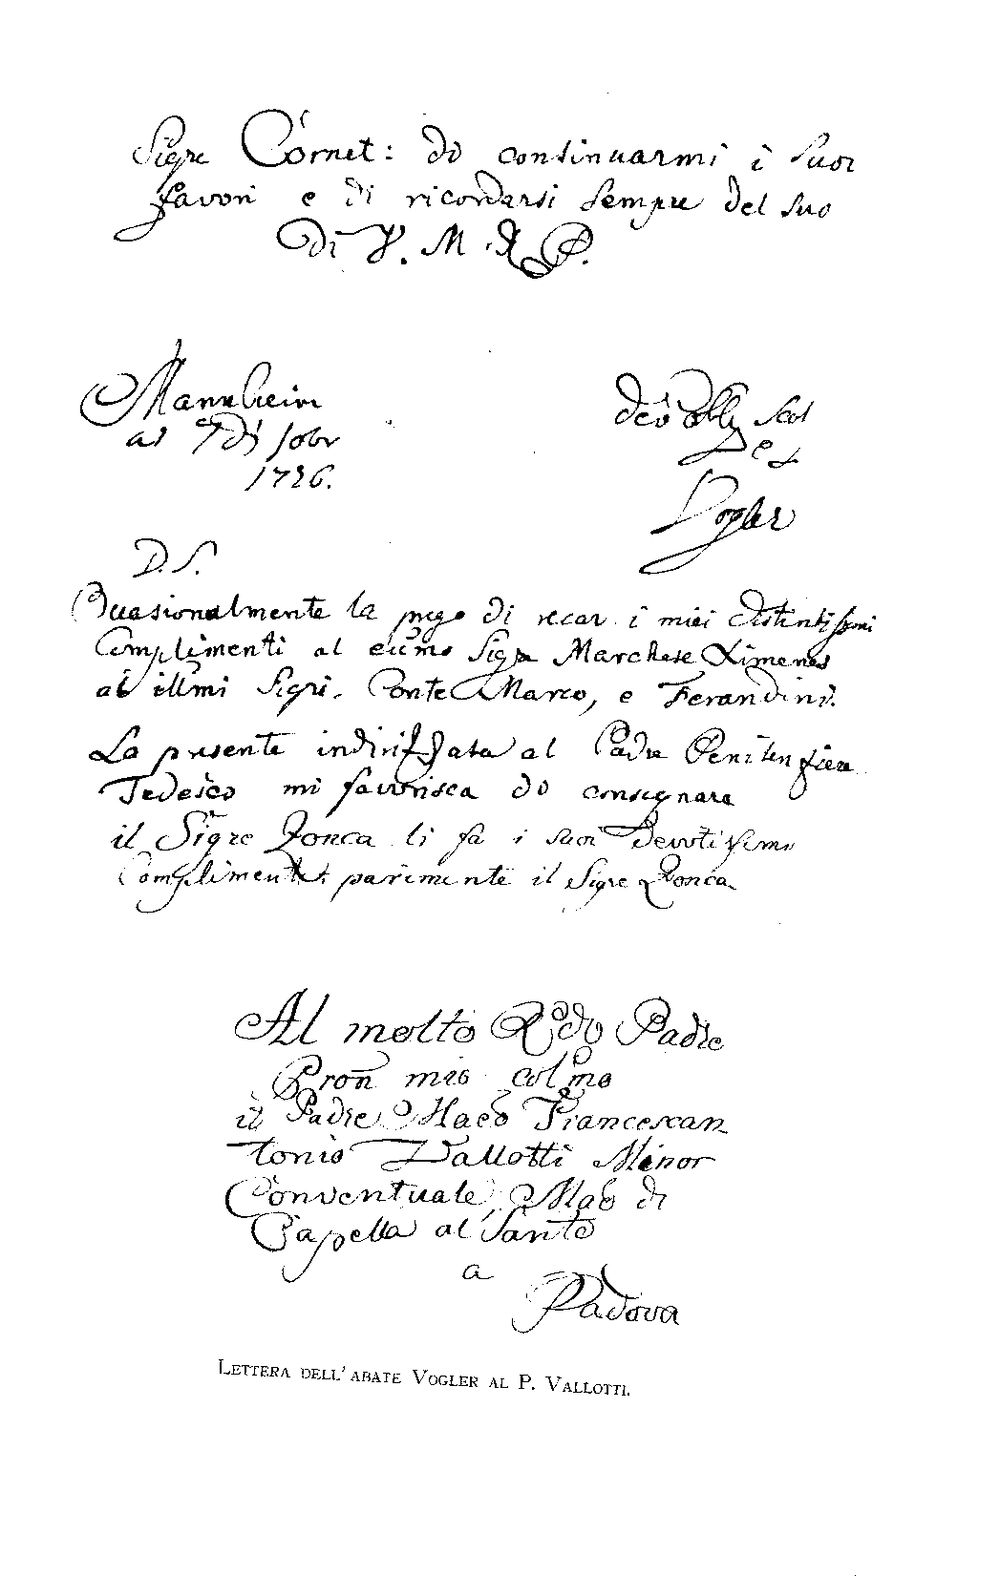 Sigre Cornet: di continuarmi i Suoi
favori e di ricordarsi sempre del Suo
Di V. M. R. P.
Mannheim
ai 9 di
1776.
devo obblig
Vogler
P. S.
Occasionalmente la prego di recar i miei distintissimi
Complimenti al Sigre Marchese Ximenes
ai illmi Sigri. Conte Marco, e Ferandini.
La presente indirizzata al Padre Penitenziere
Tedesco mi favorisca di consignare
il Sigre Zonca li fa i suoi Devotissimi
Complimenti parimente il Sigre Zonca
Al molto Rdo Padre
Pron mio Colmo
il Padre Maeo Francescan
tonio Vallotti Minor
Conventuale Mao di
Capella al Santo
a
Padova
LETTERA DELL' ABATE VOGLER AL P. VALLOTTI.